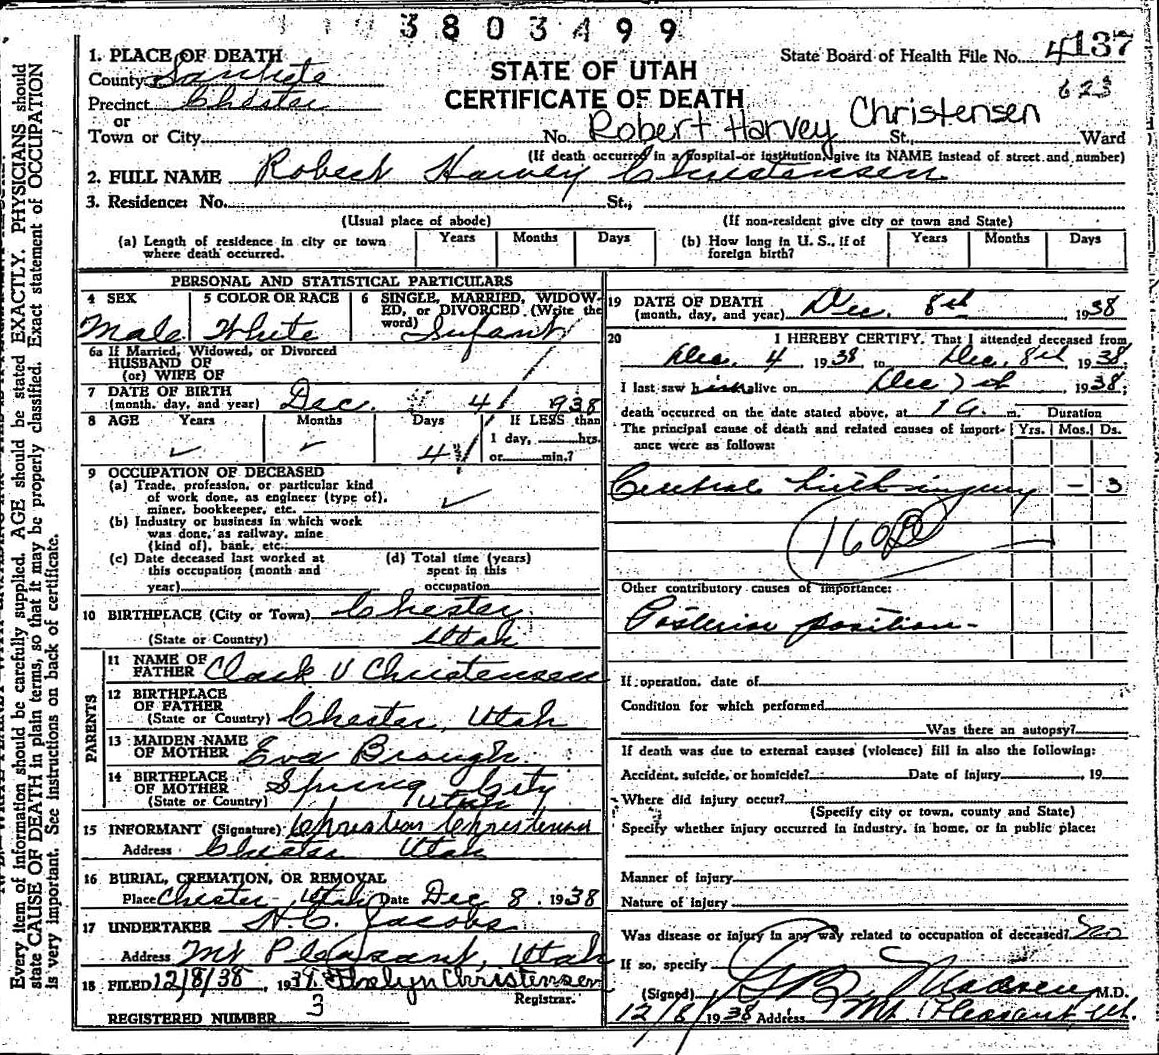 3803499
1. PLACE OF DEATH
County Sanpete
Precinct Chester
or
Town or City
STATE OF UTAH
CERTIFICATE OF DEATH
State Board of Health File No. 4137
623
No. Robert Harvey Christensen St., Ward
(If death occurred in a hospital or institution, give its NAME instead of street and number)
2. FULL NAME Robert Harvey Christensen
3. Residence: No. St.,
(Usual place of abode) (If non-resident give city or town and State)
(a) Length of residence in city or town where death occurred. Years Months Days
(b) How long in U. S., if of foreign birth? Years Months Days
PERSONAL AND STATISTICAL PARTICULARS
4 SEX
Male
5 COLOR OR RACE
White
6 SINGLE, MARRIED, WIDOW-
ED, or DIVORCED (Write the
word) Infant
6a If Married, Widowed, or Divorced
HUSBAND OF
(or) WIFE OF
7 DATE OF BIRTH
(month, day, and year) Dec. 4 1938
8 AGE Years Months Days If LESS than
4 1 day, hrs.
or min.?
9 OCCUPATION OF DECEASED
(a) Trade, profession, or particular kind
of work done, as engineer (type of),
miner, bookkeeper, etc.
(b) Industry or business in which work
was done, as railway, mine
(kind of), bank, etc.
(c) Date deceased last worked at
this occupation (month and
year)
(d) Total time (years)
spent in this
occupation
10 BIRTHPLACE (City or Town) Chester
(State or Country) Utah
PARENTS
11 NAME OF
FATHER Clark V Christensen
12 BIRTHPLACE
OF FATHER
(State or Country) Chester, Utah
13 MAIDEN NAME
OF MOTHER Eva Brough
14 BIRTHPLACE
OF MOTHER Spring City
(State or Country) Utah
15 INFORMANT (Signature) Christian Christensen
Address Chester Utah
16 BURIAL, CREMATION, OR REMOVAL
Place Chester Utah Date Dec 8, 1938
17 UNDERTAKER H.C. Jacobs
Address Mt Pleasant, Utah
18 FILED 12/8/38, 193 Christensen
Registrar.
REGISTERED NUMBER 3
19 DATE OF DEATH
(month, day, and year) Dec. 8th, 1938
20 I HEREBY CERTIFY, That I attended deceased from
Dec. 4, 1938, to Dec. 8th, 1938,
I last saw him alive on Dec 7th 1938,
death occurred on the date stated above, at 1 a. m.
Duration
The principal cause of death and related causes of import-
ance were as follows:
Yrs. Mos. Ds.
Cerebral birth injury - 3
160
Other contributory causes of importance:
Posterior position-
If operation, date of
Condition for which performed
Was there an autopsy?
If death was due to external causes (violence) fill in also the following:
Accident, suicide, or homicide? Date of injury , 19
Where did injury occur?
(Specify city or town, county and State)
Specify whether injury occurred in industry, in home, or in public place:
Manner of injury
Nature of injury
Was disease or injury in any way related to occupation of deceased? No
If so, specify
(Signed) Madsen M.D.
12/8/1938 Address Mt. Pleasant, Ut.
Every item of information should be carefully supplied. AGE should be stated EXACTLY. PHYSICIANS should
state CAUSE OF DEATH in plain terms, so that it may be properly classified. Exact statement of OCCUPATION
is very important. See instructions on back of certificate.